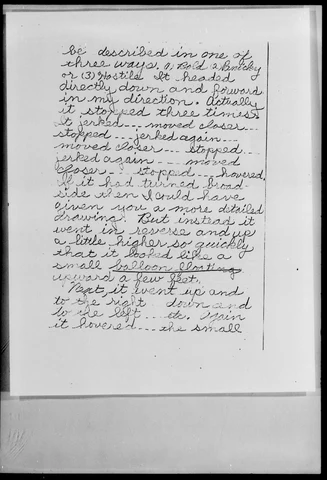 be described in one of
three ways. 1) Bold 2)
or (3) Hostile It headed
directly down and forward
in my direction. Actually
it stopped three times.
It jerked --- moved closer ---
stopped --- jerked again ---
moved closer --- stopped ---
jerked again --- moved
closer - stopped --- hovered.
If it had turned broad-
side then I could have
given you a more detailed
drawing. But instead it
went in reverse and up
a little higher so quickly
that it looked like a
small balloon floating
upward a few feet.
Next, it went up and
to the right down and
to the left -- etc. Again
it hovered --- the small